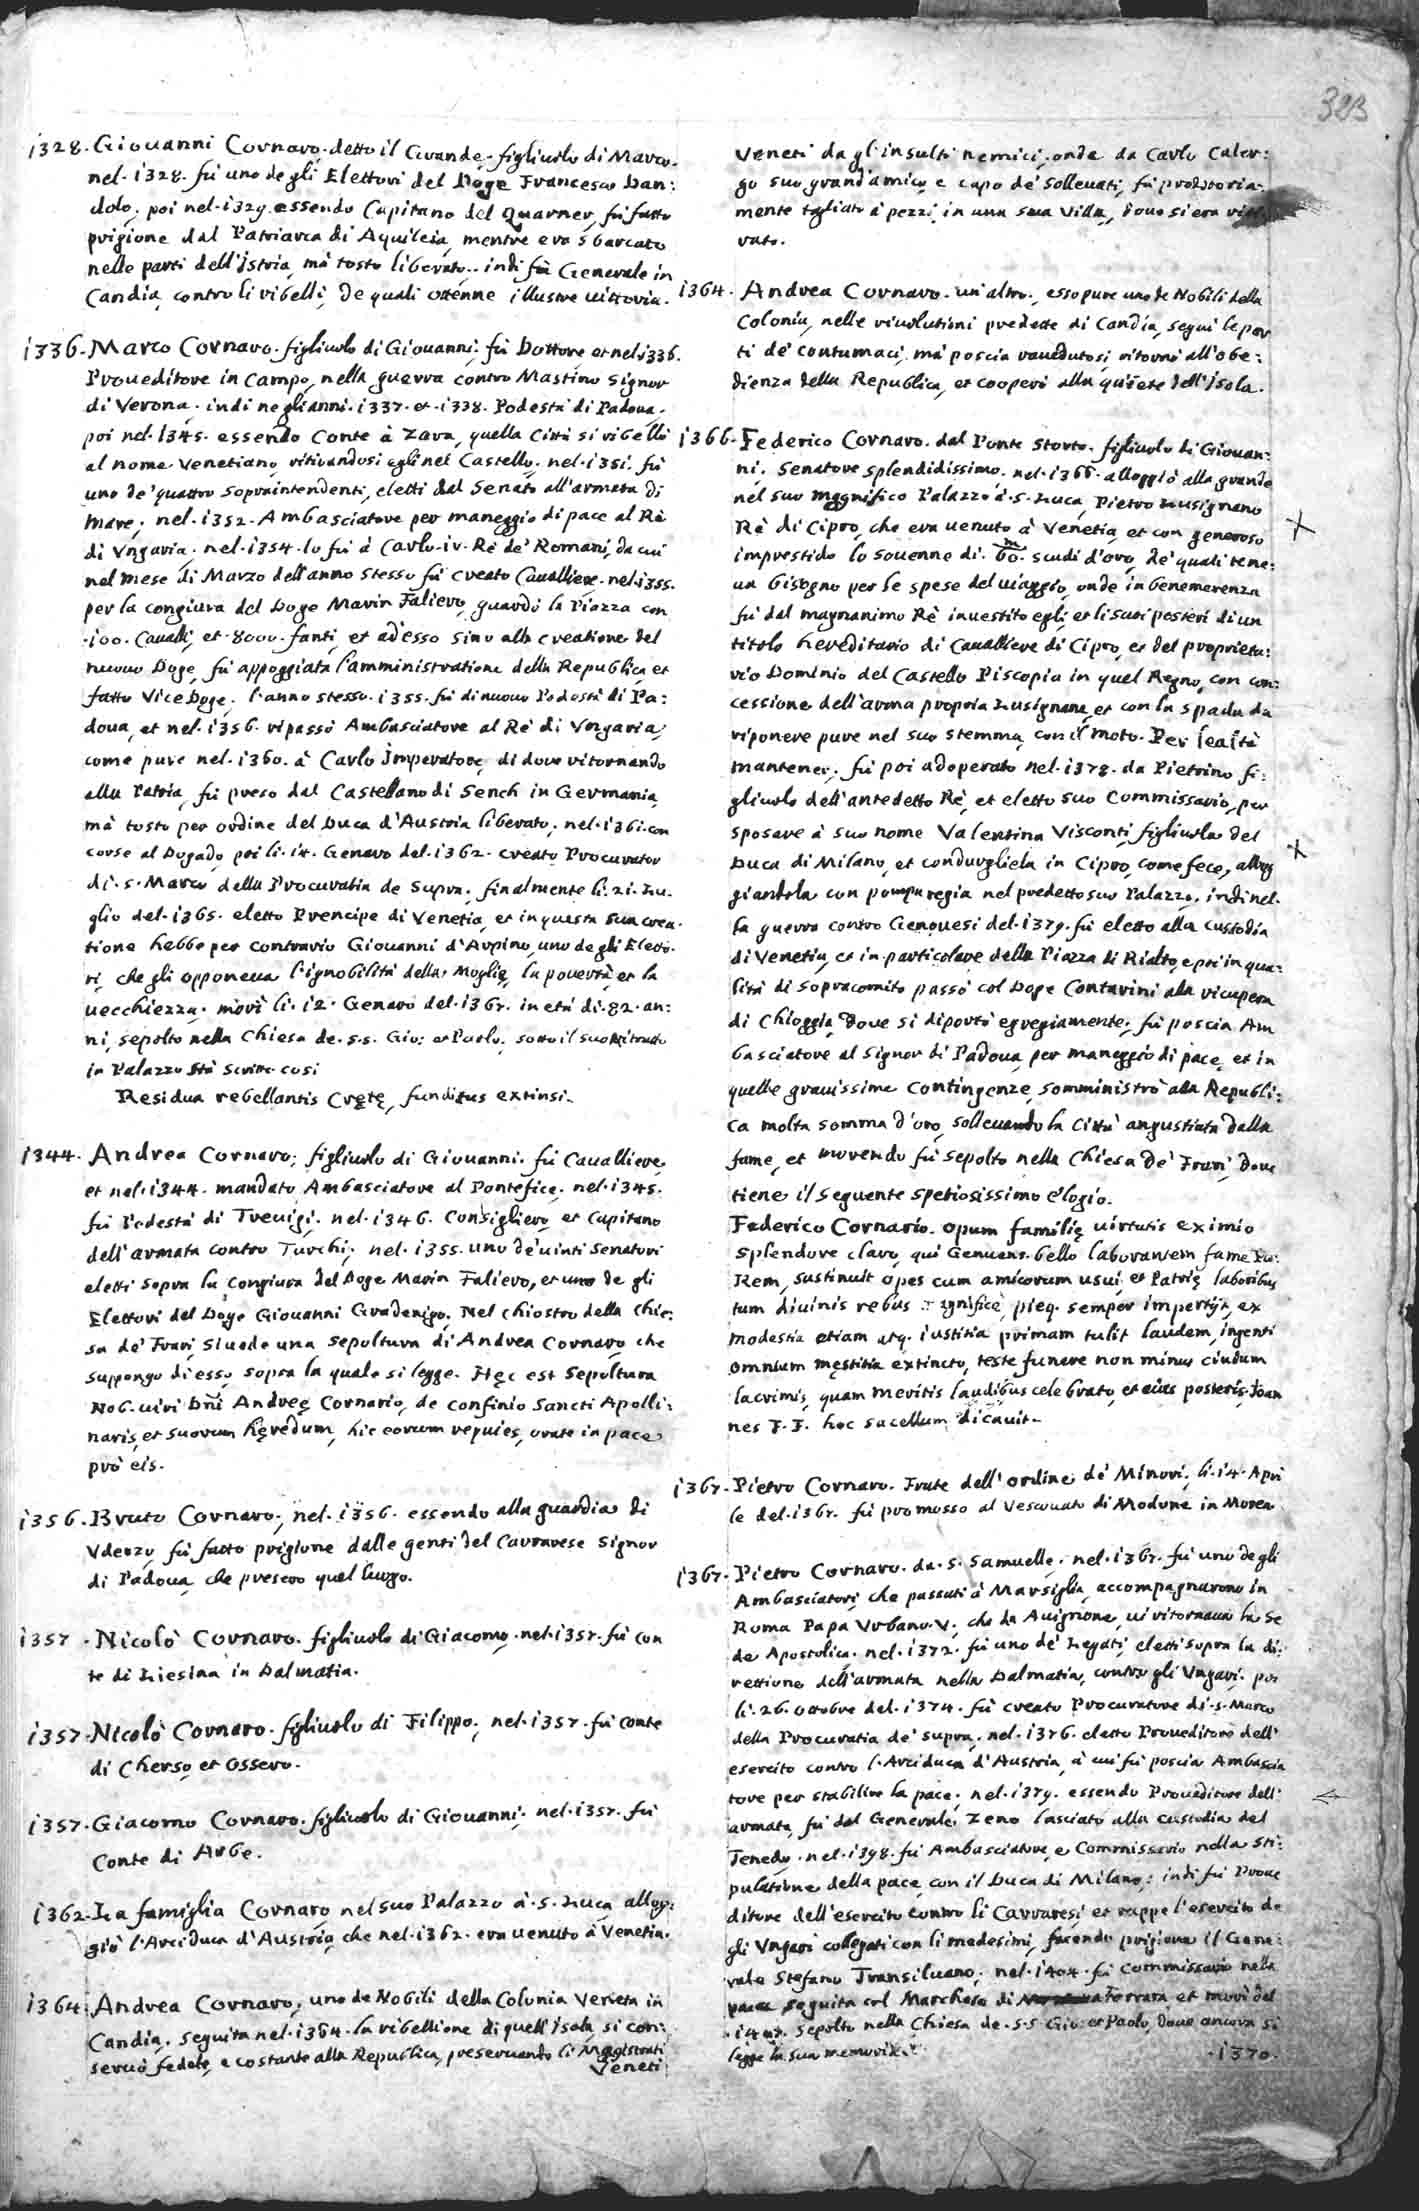 323
1328. Giouanni Cornaro. detto il Grande. figliuolo di Marco.
nel. 1328. fù uno degli Elettori del Doge Francesco Dan:
dolo. poi nel. 1329. essendo Capitano del Quarner, fù fatto
prigione dal Patriarca di Aquileia, mentre era sbarcato
nelle parti dell'Istria, mà tosto liberato.. indi fù Generale in
Candia, contro li ribelli, de quali ottenne illustre uittoria.
1336. Marco Cornaro. figliuolo di Giouanni; fù Dottore et nel. 1336.
Proueditore in Campo, nella guerra contro Mastino Signor
di Verona; indi negli anni. 1337. et. 1338. Podestà di Padoua,
poi nel. 1345. essendo Conte à Zara, quella Città si ribellò
al nome Venetiano, ritirandosi egli nel Castello. nel. 1351. fù
uno de' quattro Sopraintendenti, eletti dal Senato all'armata di
Mare; nel. 1352. Ambasciatore per maneggio di pace al Rè
di Vngaria; nel. 1354. lo fù à Carlo. iv. Rè de' Romani, da cui
nel mese di Marzo dell'anno stesso fù creato Caualliere. nel. 1355.
per la congiura del Doge Marin Falievo, guardò la Piazza con
.100. Caualli, et. 8000. fanti, et ad'esso sino alla creatione del
nuouo Doge, fù appoggiata l'amministratione della Republica, et
fatto Vice Doge. l'anno stesso. 1355. fù di nuouo Podestà di Pa:
doua, et nel. 1356. ripassò Ambasciatore al Rè di Vngaria,
come pure nel. 1360. à Carlo Imperatore, di doue ritornando
alla Patria, fù preso dal Castellano di Sench in Germania,
mà tosto per ordine del Duca d'Austria liberato; nel. 1361. con
corse al Dogado, poi li. 14. Genaro del. 1362. creato Procurator
di. S. Marco della Procuratia de Supra; finalmente li. 21. Lu.
glio del. 1365. eletto Prencipe di Venetia, et in questa sua crea.
tione hebbe per contrario Giouanni d'Arpino, uno degli Eletto.
ri, che gli opponeua l'ignobilità della Moglie, la pouertà, et la
uecchiezza. morì li. 12. Genaro del. 1367. in età di. 82. an:
ni, sepolto nella Chiesa de. S.S. Gio: et Paolo; sotto il suo Ritratto
in Palazzo stà scritto cosi
Residua rebellantis Cretę, funditus extinsi.
1344. Andrea Cornaro; figliuolo di Giouanni. fù Caualliere,
et nel. 1344. mandato Ambasciatore al Pontefice. nel. 1345.
fù Podestà di Treuigi. nel. 1346. Consigliero, et Capitano
dell'armata contro Turchi; nel. 1355. uno de' uinti Senatori
eletti sopra la Congiura del Doge Marin Falievo, et uno de gli
Elettori del Doge Giouanni Gradenigo. Nel chiostro della chie:
sa de' Frari, si uede una sepoltura di Andrea Cornaro, che
suppongo di esso, sopra la quale si legge. Hęc est Sepoltura
Nob. uiri Dñi Andreę Cornario, de confinio Sancti Apolli:
naris, et suorum hęredum, hic eorum requies, orate in pace
prò eis.
1356. Bruto Cornaro; nel. 1356. essendo alla guardia di
Vderzo, fù fatto prigione dalle genti del Carrarese Signor
di Padoua, che presero quel luogo.
1357. Nicolò Cornaro. figliuolo di Giacomo. nel. 1357. fù con
te di Liesina in Dalmatia.
1357. Nicolò Cornaro. figliuolo di Filippo; nel. 1357. fù conte
di Cherso, et Ossero.
1357. Giacomo Cornaro. figliuolo di Giouanni; nel. 1357. fù
Conte di Arbe.
1362. La famiglia Cornaro, nel suo Palazzo à. S. Luca, allog:
giò l'Arciduca d'Austria, che nel. 1362. era uenuto à Venetia.
1364. Andrea Cornaro, uno de Nobili della Colonia Veneta in
Candia. seguita nel. 1364. la ribellione di quell'Isola, si con:
seruò fedele, e costante alla Republica, preseruando li Magistrati
Veneti
Veneti da gl'insulti nemici, onde da Carlo Caler:
go suo grand'amico, e capo de' solleuati, fù proditoria.
mente tagliato à pezzi, in una sua Villa, doue si era riti
rato.
1364. Andrea Cornaro. un'altro, esso pure uno de Nobili della
Colonia, nelle riuolutioni predette di Candia, seguì le par
ti de' contumaci, mà poscia rauedutosi, ritornò all'obe:
dienza della Republica, et cooperò alla quiete dell'Isola.
1366. Federico Cornaro. dal Ponte Storto. figliuolo di Giouan:
ni, Senatore splendidissimo, nel. 1366. alloggiò alla grande
nel suo magnifico Palazzo à. S. Luca, Pietro Lusignano
Rè di Cipro, che era uenuto à Venetia, et con generoso
imprestido lo souenne di. 60. m scudi d'oro, de' quali tene:
ua bisogno per le spese del uiaggio, onde in benemerenza
fù dal magnanimo Rè inuestito egli, et li suoi posteri di un
titolo hereditario di Caualliere di Cipro, et del proprieta:
rio Dominio del Castello Piscopia in quel Regno, con con:
cessione dell'arma propria Lusignana, et con la spada da
riponere pure nel suo stemma, con il moto. Per lealtà
mantener; fù poi adoperato nel. 1378. da Pietrino fi:
gliuolo dell'antedetto Rè, et eletto suo Commissario, per
sposare à suo nome Valentina Visconti, figliuola del
Duca di Milano, et condurgliela in Cipro, come fece, allog
giandola con pompa regia nel predetto suo Palazzo. indi nel.
la guerra contro Genouesi del. 1379. fù eletto alla custodia
di Venetia, et in particolare della Piazza di Rialto, e poi in qua:
lità di Sopracomito passò col Doge Contarini alla ricupera
di Chioggia, doue si diportò egregiamente; fù poscia Am
basciatore al Signor di Padoua, per maneggio di pace, et in
quelle grauissime contingenze, somministrò alla Republi:
ca molta somma d'oro, solleuando la Città angustiata dalla
fame, et morendo fù sepolto nella Chiesa de' Frari, doue
tiene il seguente spetiosissimo elogio.
Federico Cornario. opum familię uirtutis eximio
splendore claro, qui Genuens. bello laborantem fame Pu:
Rem, sustinuit opes cum amicorum usui, et Patrię laboribus
tum diuinis rebus gnificè, pieq. semper impertijt, ex
modestia etiam atq. iustitia primam tulit laudem, ingenti
omnium męstitia extincto, teste funere non minus ciuium
lacrimis, quam meritis laudibus celebrato, et eius posteris, Joan
nes F. F. hoc sacellum dicauit.
1367. Pietro Cornaro. Frate dell'ordine de' Minori; li. 14. Apri
le del. 1367. fù promosso al Vescouato di Modone in Morea
1367. Pietro Cornaro. da. S. Samuelle; nel. 1367. fù uno degli
Ambasciatori, che passati à Marsiglia, accompagnarono in
Roma Papa Vrbano. V; che da Auignone, ui ritornaua la Se
de Apostolica. nel. 1372. fù uno de' Legati, eletti sopra la di:
rettione dell'armata nella Dalmatia, contro gli Vngari. poi
li. 26. Ottobre del. 1374. fù creato Procuratore di. S. Marco
della Procuratia de' supra; nel. 1376. eletto Proueditore dell'
esercito contro l'Arciduca d'Austria, à cui fù poscia Ambascia
tore per stabilire la pace; nel. 1379. essendo Proueditore dell'
armata, fù dal Generale Zeno lasciato alla custodia del
Tenedo. nel. 1398. fù Ambasciatore, e Commissario nella sti:
pulatione della pace, con il Duca di Milano; indi fù Proue
ditore dell'esercito contro li Carraresi, et ruppe l'esercito de
gli Vngari collegati con li medesimi, facendo prigione il Gene:
rale Stefano Transiluano; nel. 1404. fù Commissario nella
pace seguita col Marchese di Ferrara, et morì del
. sepolto nella Chiesa de. S.S. Gio: et Paolo, doue ancora si
legge la sua memoria.
.1370.